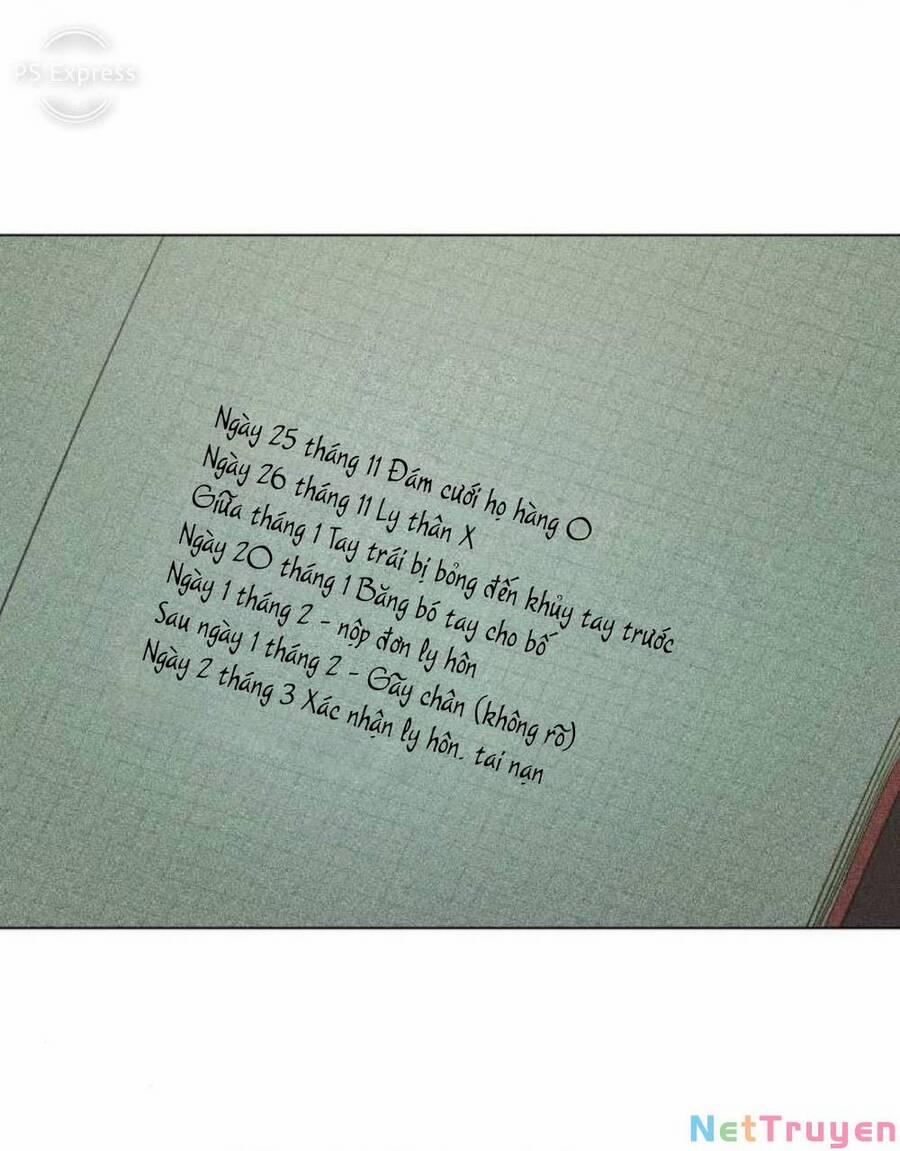 PS Express
Ngày 25 tháng 11 Đám cưới họ hàng O
Ngày 26 tháng 11 Ly thân X
Giữa tháng 1 Tay trái bị bỏng đến khủy tay trước
Ngày 20 tháng 1 Băng bó tay cho bố
Ngày 1 tháng 2 - nộp đơn ly hôn
Sau ngày 1 tháng 2 - Gãy chân (không rõ)
Ngày 2 tháng 3 Xác nhận ly hôn. tai nạn
NetTruyen